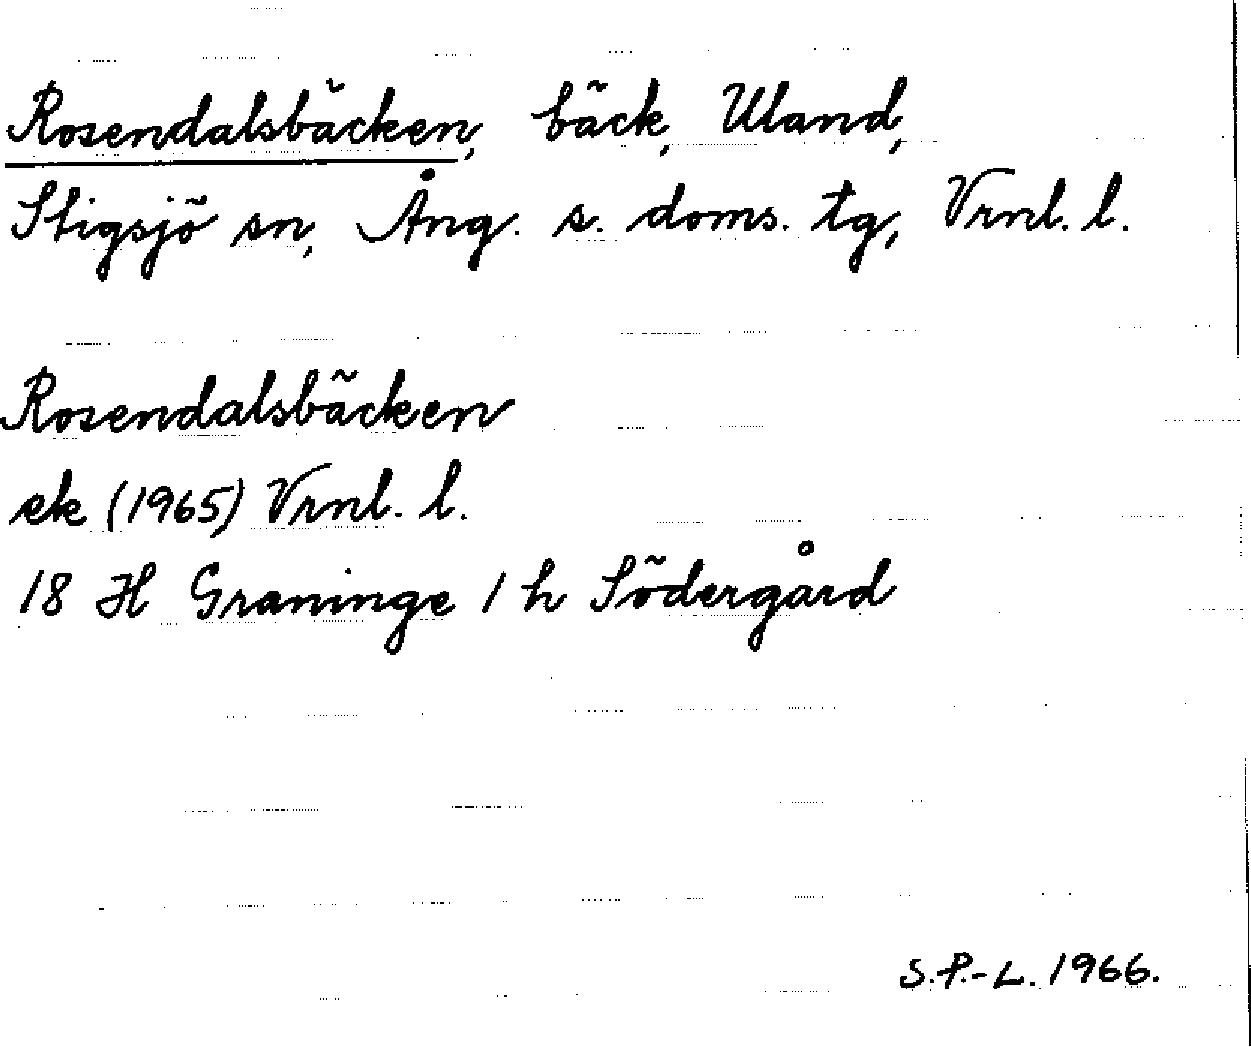 Rosendalsbäcken, bäck, Uland,
Stigsjö sn, Ång. s. doms. tg, Vrnl. l.
Rosendalsbäcken
ek (1965) Vrnl. l.
18 H Graninge 1 h Södergård
S.P.-L. 1966.